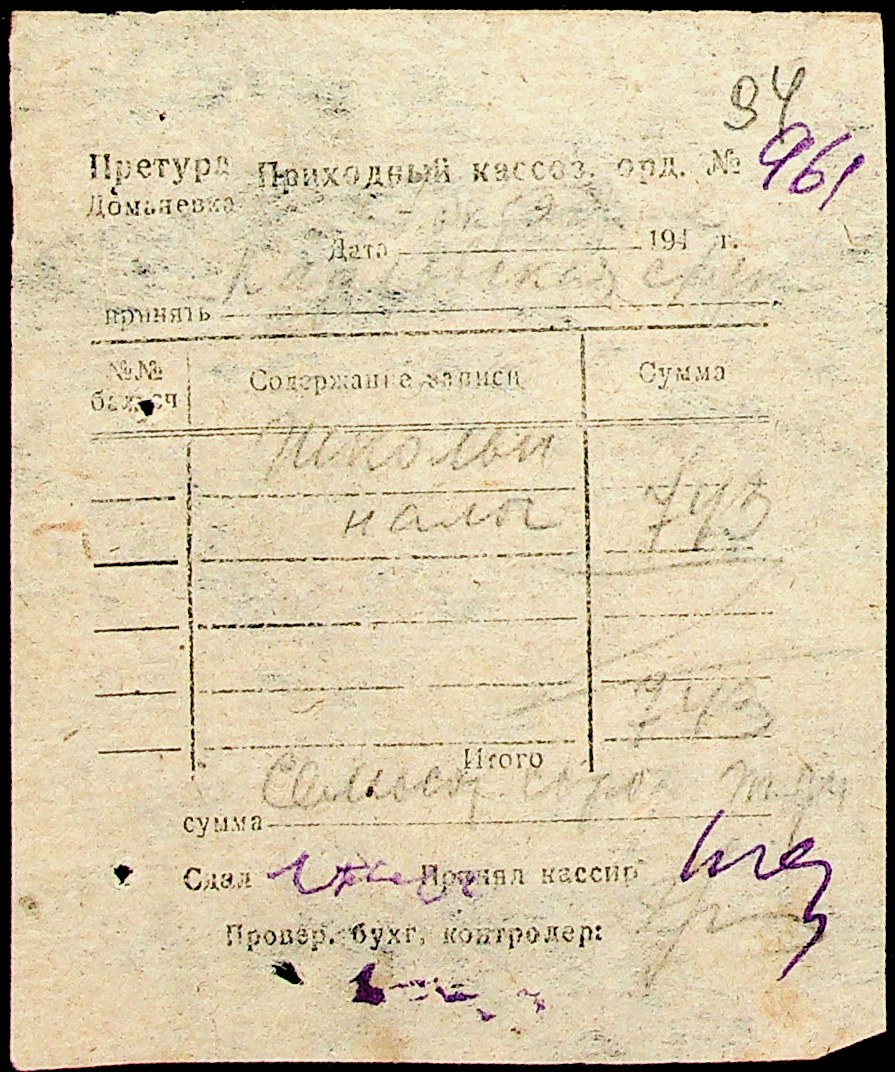 94
Претура Приходный кассов. орд. № 961
Доманевка
Дата 194 г.
принять
№№ бал. сч Содержание записи Сумма
Школьн
налог 743
743
Итого
сумма Семьсот сорок три
Сдал Принял кассир
Провер. бухг. контролер: